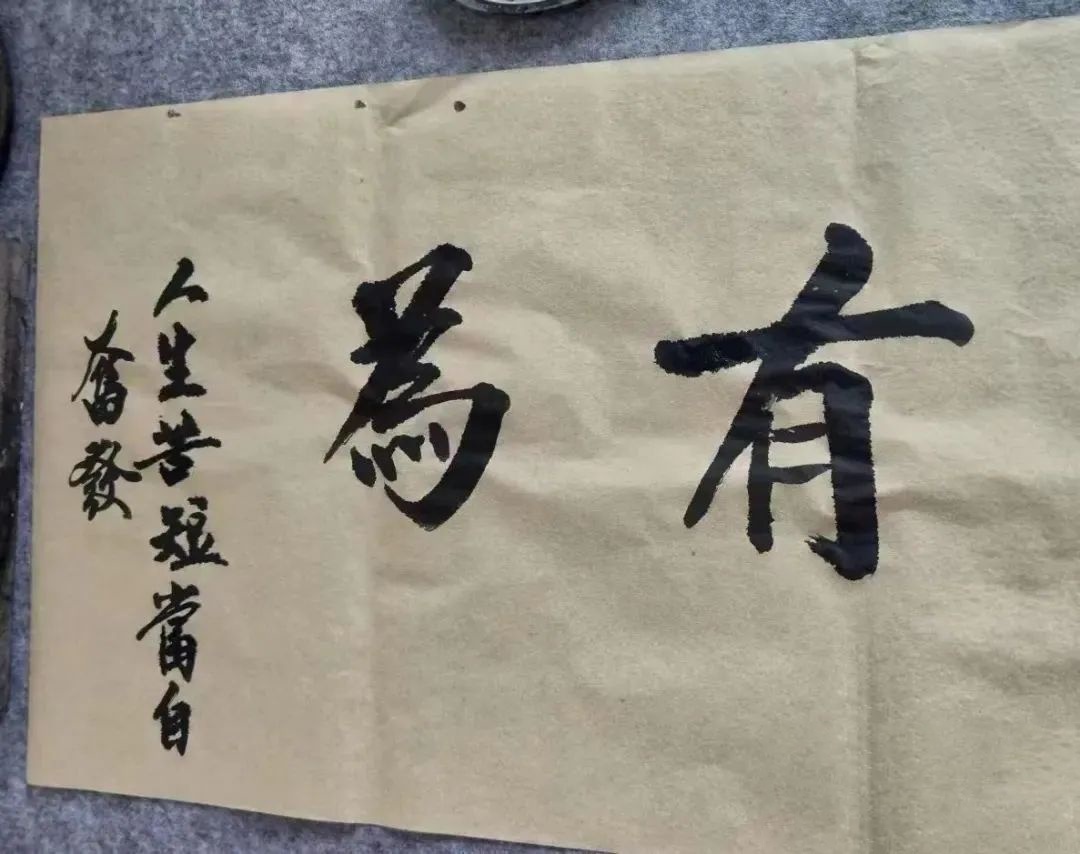 有爲
人生苦短當自
奮發